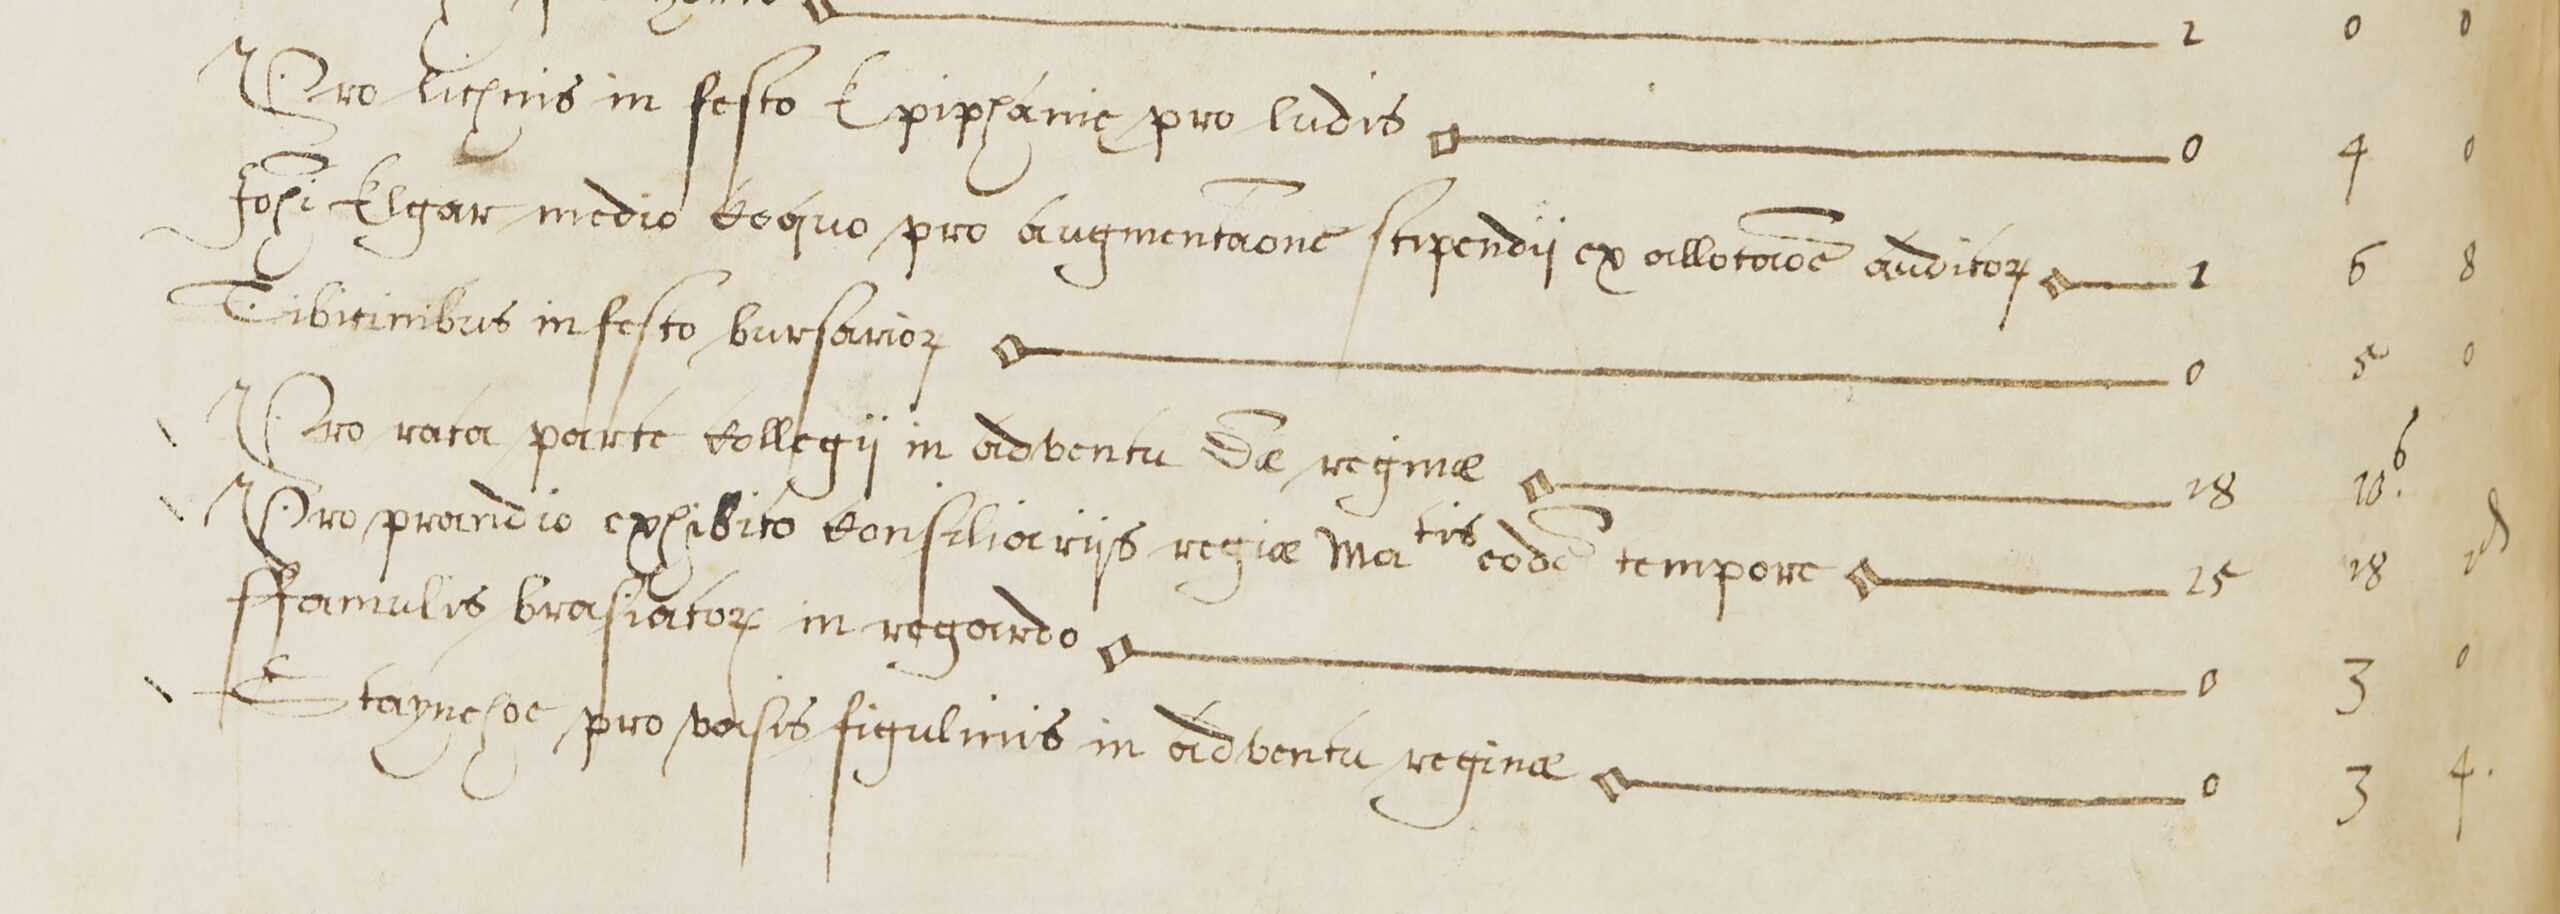 2 0 0
Pro lichnis in festo Epiphanię pro ludis 0 4 0
Johi Elgar medio coquo pro augmentaone stipendij ex allocaoe auditor 1 6 8
Tibicinibus in festo bursarior 0 5 0
Pro rata parte Collegij in adventu Dæ reginæ 18 10. 6
Pro prandio exhibito Consiliarijs regiæ Matis eode tempore 25 18
ffamulis brasiator in regardo 0 3 0
Staynehoe pro vasis figulinis in adventu reginæ 0 3 4.